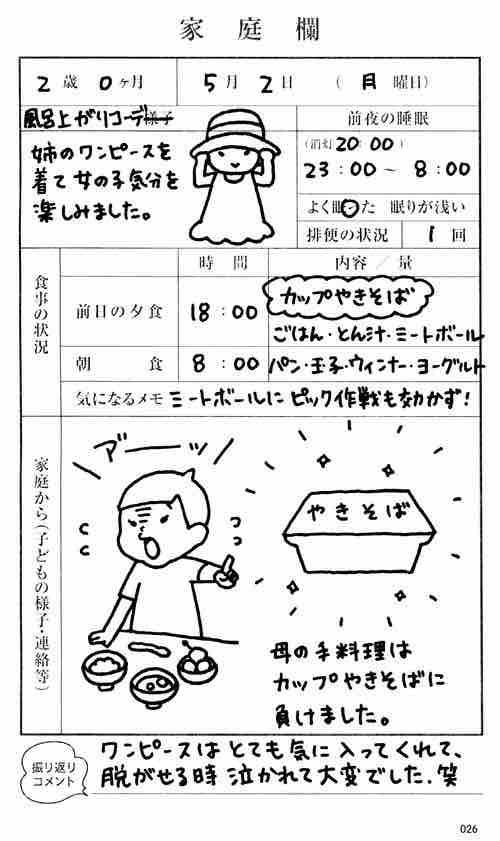 家庭欄
2歳0ヶ月
5月2日
(月曜日)
風呂上がりコーデ様子
姉のワンピースを
着て女の子気分を
楽しみました。
前夜の睡眠
(消灯20:00)
23:00〜8:00
よく眠った 眠りが浅い
排便の状況 1回
食事の状況
時間
内容/量
前日の夕食
18:00
カップやきそば
ごはん・とん汁・ミートボール
朝食
8:00
パン・玉子・ウィンナー・ヨーグルト
気になるメモ ミートボールにピック作戦も効かず!
家庭から(子どもの様子・連絡等)
ア゛ーーッ
やきそば
母の手料理は
カップやきそばに
負けました。
振り返り
コメント
ワンピースはとても気に入ってくれて、
脱がせる時泣かれて大変でした.笑
026